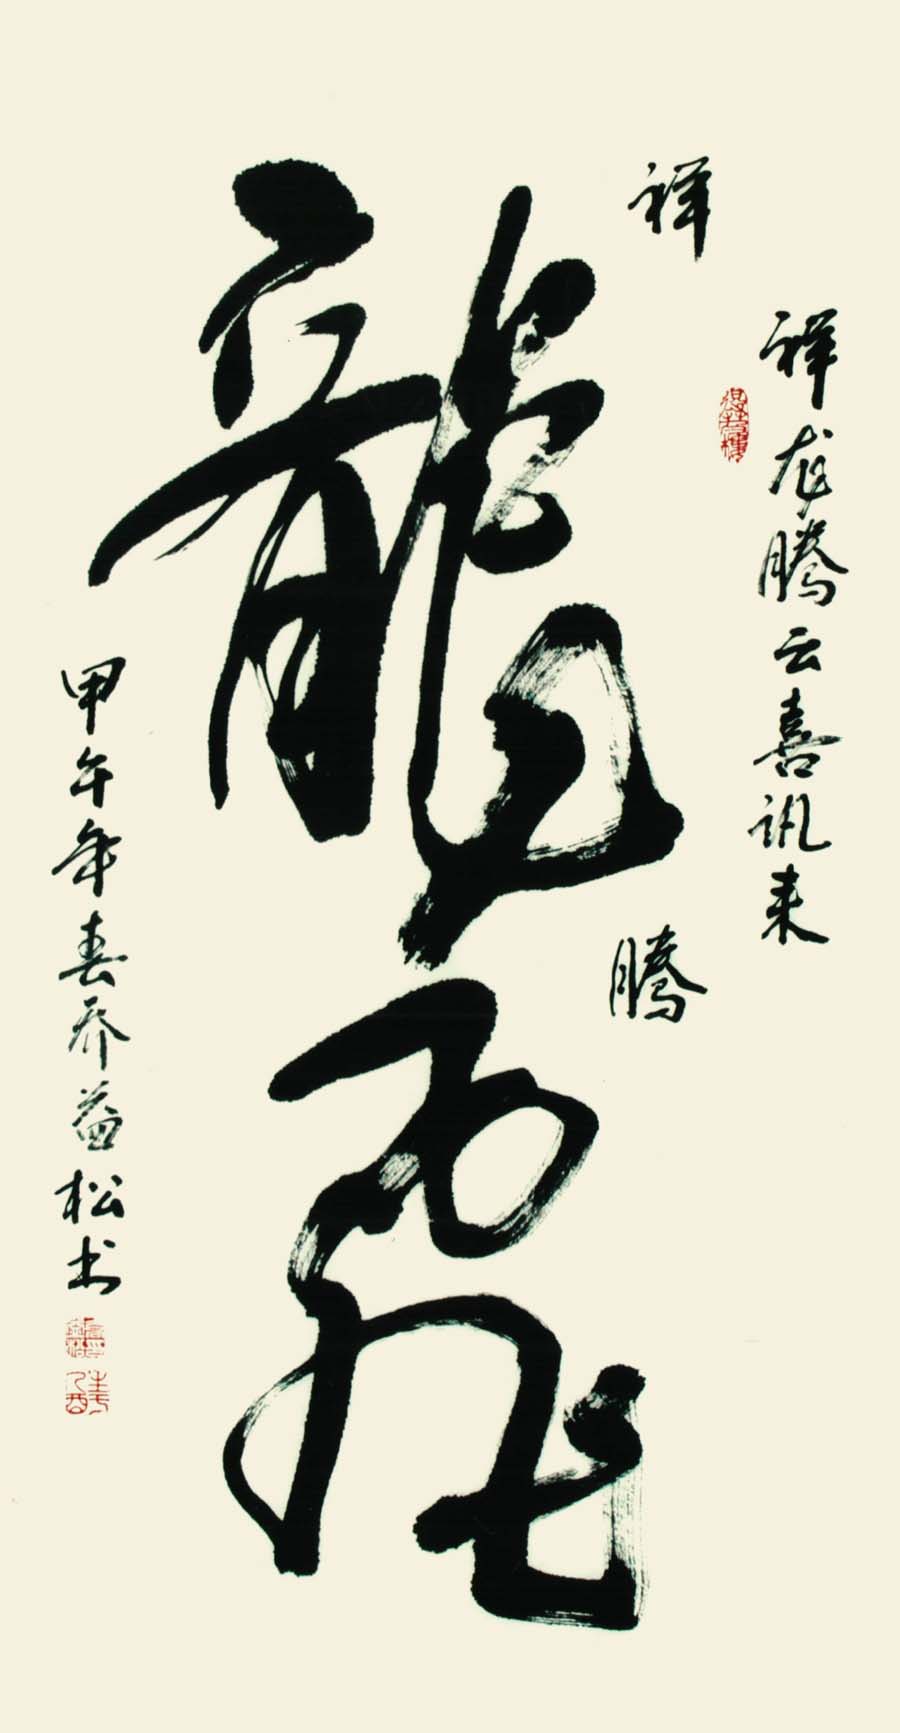 祥龙腾云喜讯来
祥
龍
腾
飛
甲午年春乔益松书